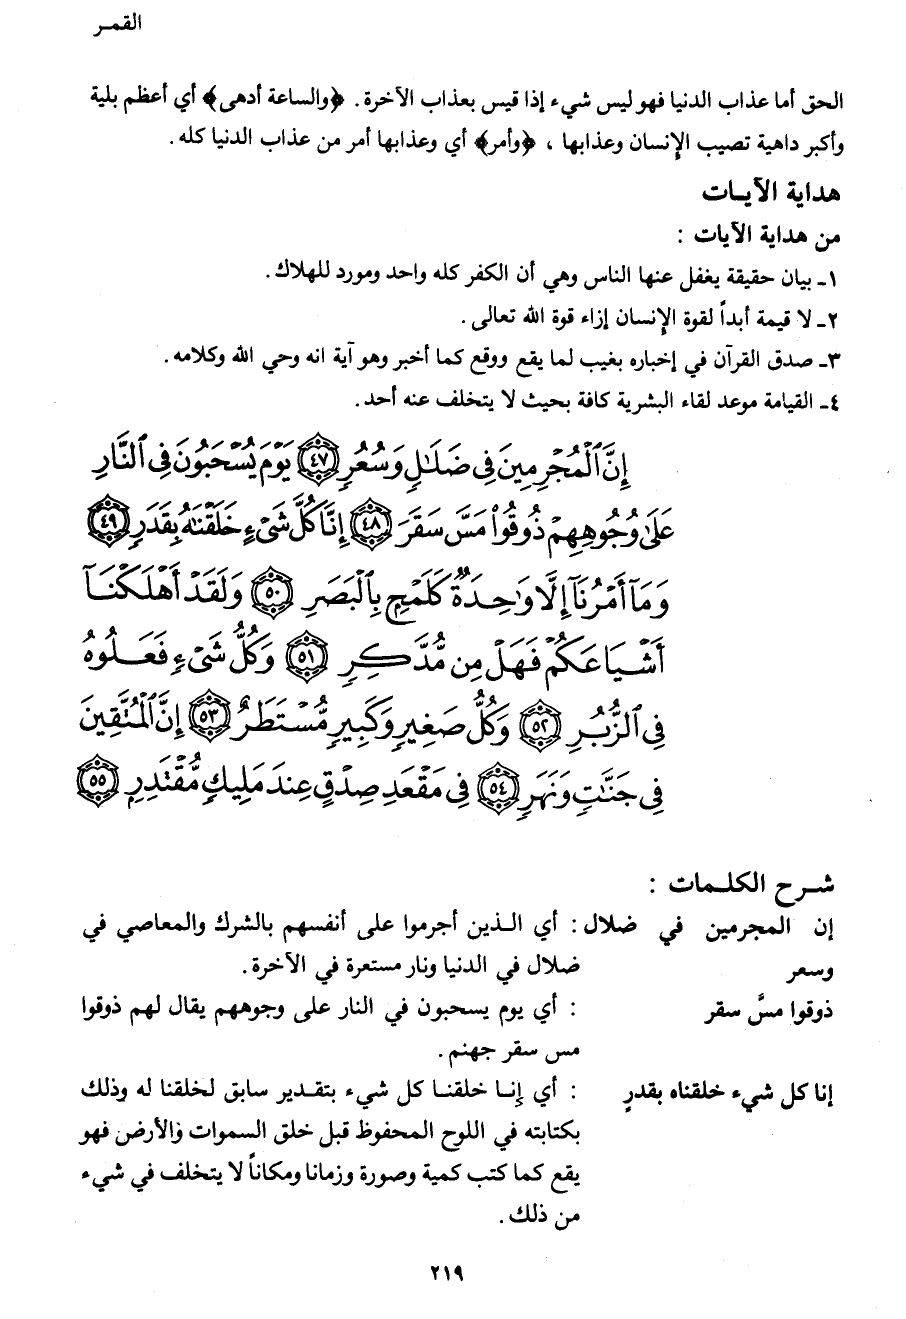 القمر
الحق أما عذاب الدنيا فهو ليس شيء إذا قيس بعذاب الآخرة. ﴿والساعة أدهى﴾ أي أعظم بلية
وأكبر داهية تصيب الإنسان وعذابها ، ﴿وأمر﴾ أي وعذابها أمر من عذاب الدنيا كله.
هداية الآيـات
من هداية الآيات :
١ـ بيان حقيقة يغفل عنها الناس وهي أن الكفر كله واحد ومورد للهلاك.
٢ـ لا قيمة أبداً لقوة الإنسان إزاء قوة الله تعالى.
٣ـ صدق القرآن في إخباره بغيب لما يقع ووقع كما أخبر وهو آية انه وحي الله وكلامه.
٤ـ القيامة موعد لقاء البشرية كافة بحيث لا يتخلف عنه أحد.
إِنَّ ٱلْمُجْرِمِينَ فِى ضَلَٰلٍ وَسُعُرٍ ﴿٤٧﴾ يَوْمَ يُسْحَبُونَ فِى ٱلنَّارِ
عَلَىٰ وُجُوهِهِمْ ذُوقُوا۟ مَسَّ سَقَرَ ﴿٤٨﴾ إِنَّا كُلَّ شَىْءٍ خَلَقْنَٰهُ بِقَدَرٍ ﴿٤٩﴾
وَمَآ أَمْرُنَآ إِلَّا وَٰحِدَةٌ كَلَمْحٍۭ بِٱلْبَصَرِ ﴿٥٠﴾ وَلَقَدْ أَهْلَكْنَآ
أَشْيَاعَكُمْ فَهَلْ مِن مُّدَّكِرٍ ﴿٥١﴾ وَكُلُّ شَىْءٍ فَعَلُوهُ
فِى ٱلزُّبُرِ ﴿٥٢﴾ وَكُلُّ صَغِيرٍ وَكَبِيرٍ مُّسْتَطَرٌ ﴿٥٣﴾ إِنَّ ٱلْمُتَّقِينَ
فِى جَنَّٰتٍ وَنَهَرٍ ﴿٥٤﴾ فِى مَقْعَدِ صِدْقٍ عِندَ مَلِيكٍ مُّقْتَدِرٍۭ ﴿٥٥﴾
شـرح الكلـمات :
إن المجرمين في ضلال : أي الـذين أجرموا على أنفسهم بالشرك والمعاصي في
وسعر ضلال في الدنيا ونار مستعرة في الآخرة.
ذوقوا مسَّ سقر : أي يوم يسحبون في النار على وجوههم يقال لهم ذوقوا
مس سقر جهنم.
إنا كل شيء خلقناه بقدرٍ : أي إنـا خلقنـا كل شيء بتقدير سابق لخلقنا له وذلك
بكتابته في اللوح المحفوظ قبل خلق السموات والأرض فهو
يقع كما كتب كمية وصورة وزمانا ومكاناً لا يتخلف في شيء
من ذلك.
٢١٩